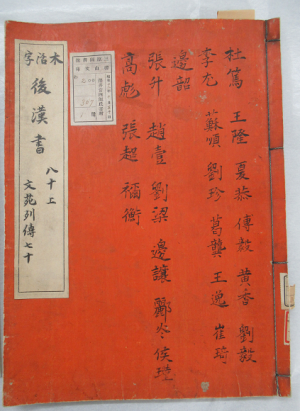 杜篤 王隆 夏恭 傅毅 黃香 劉毅
李尤 蘇順 劉珍 葛龔 王逸 崔琦
邊韶
張升 趙壹 劉梁 邊讓 酈炎 侯瑾
高彪 張超 禰衡
木活字
後漢書 八十上
文苑列傳七十